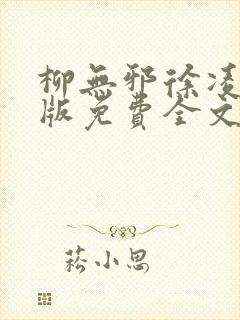 柳無邪徐凌
版免費全文
菘小思